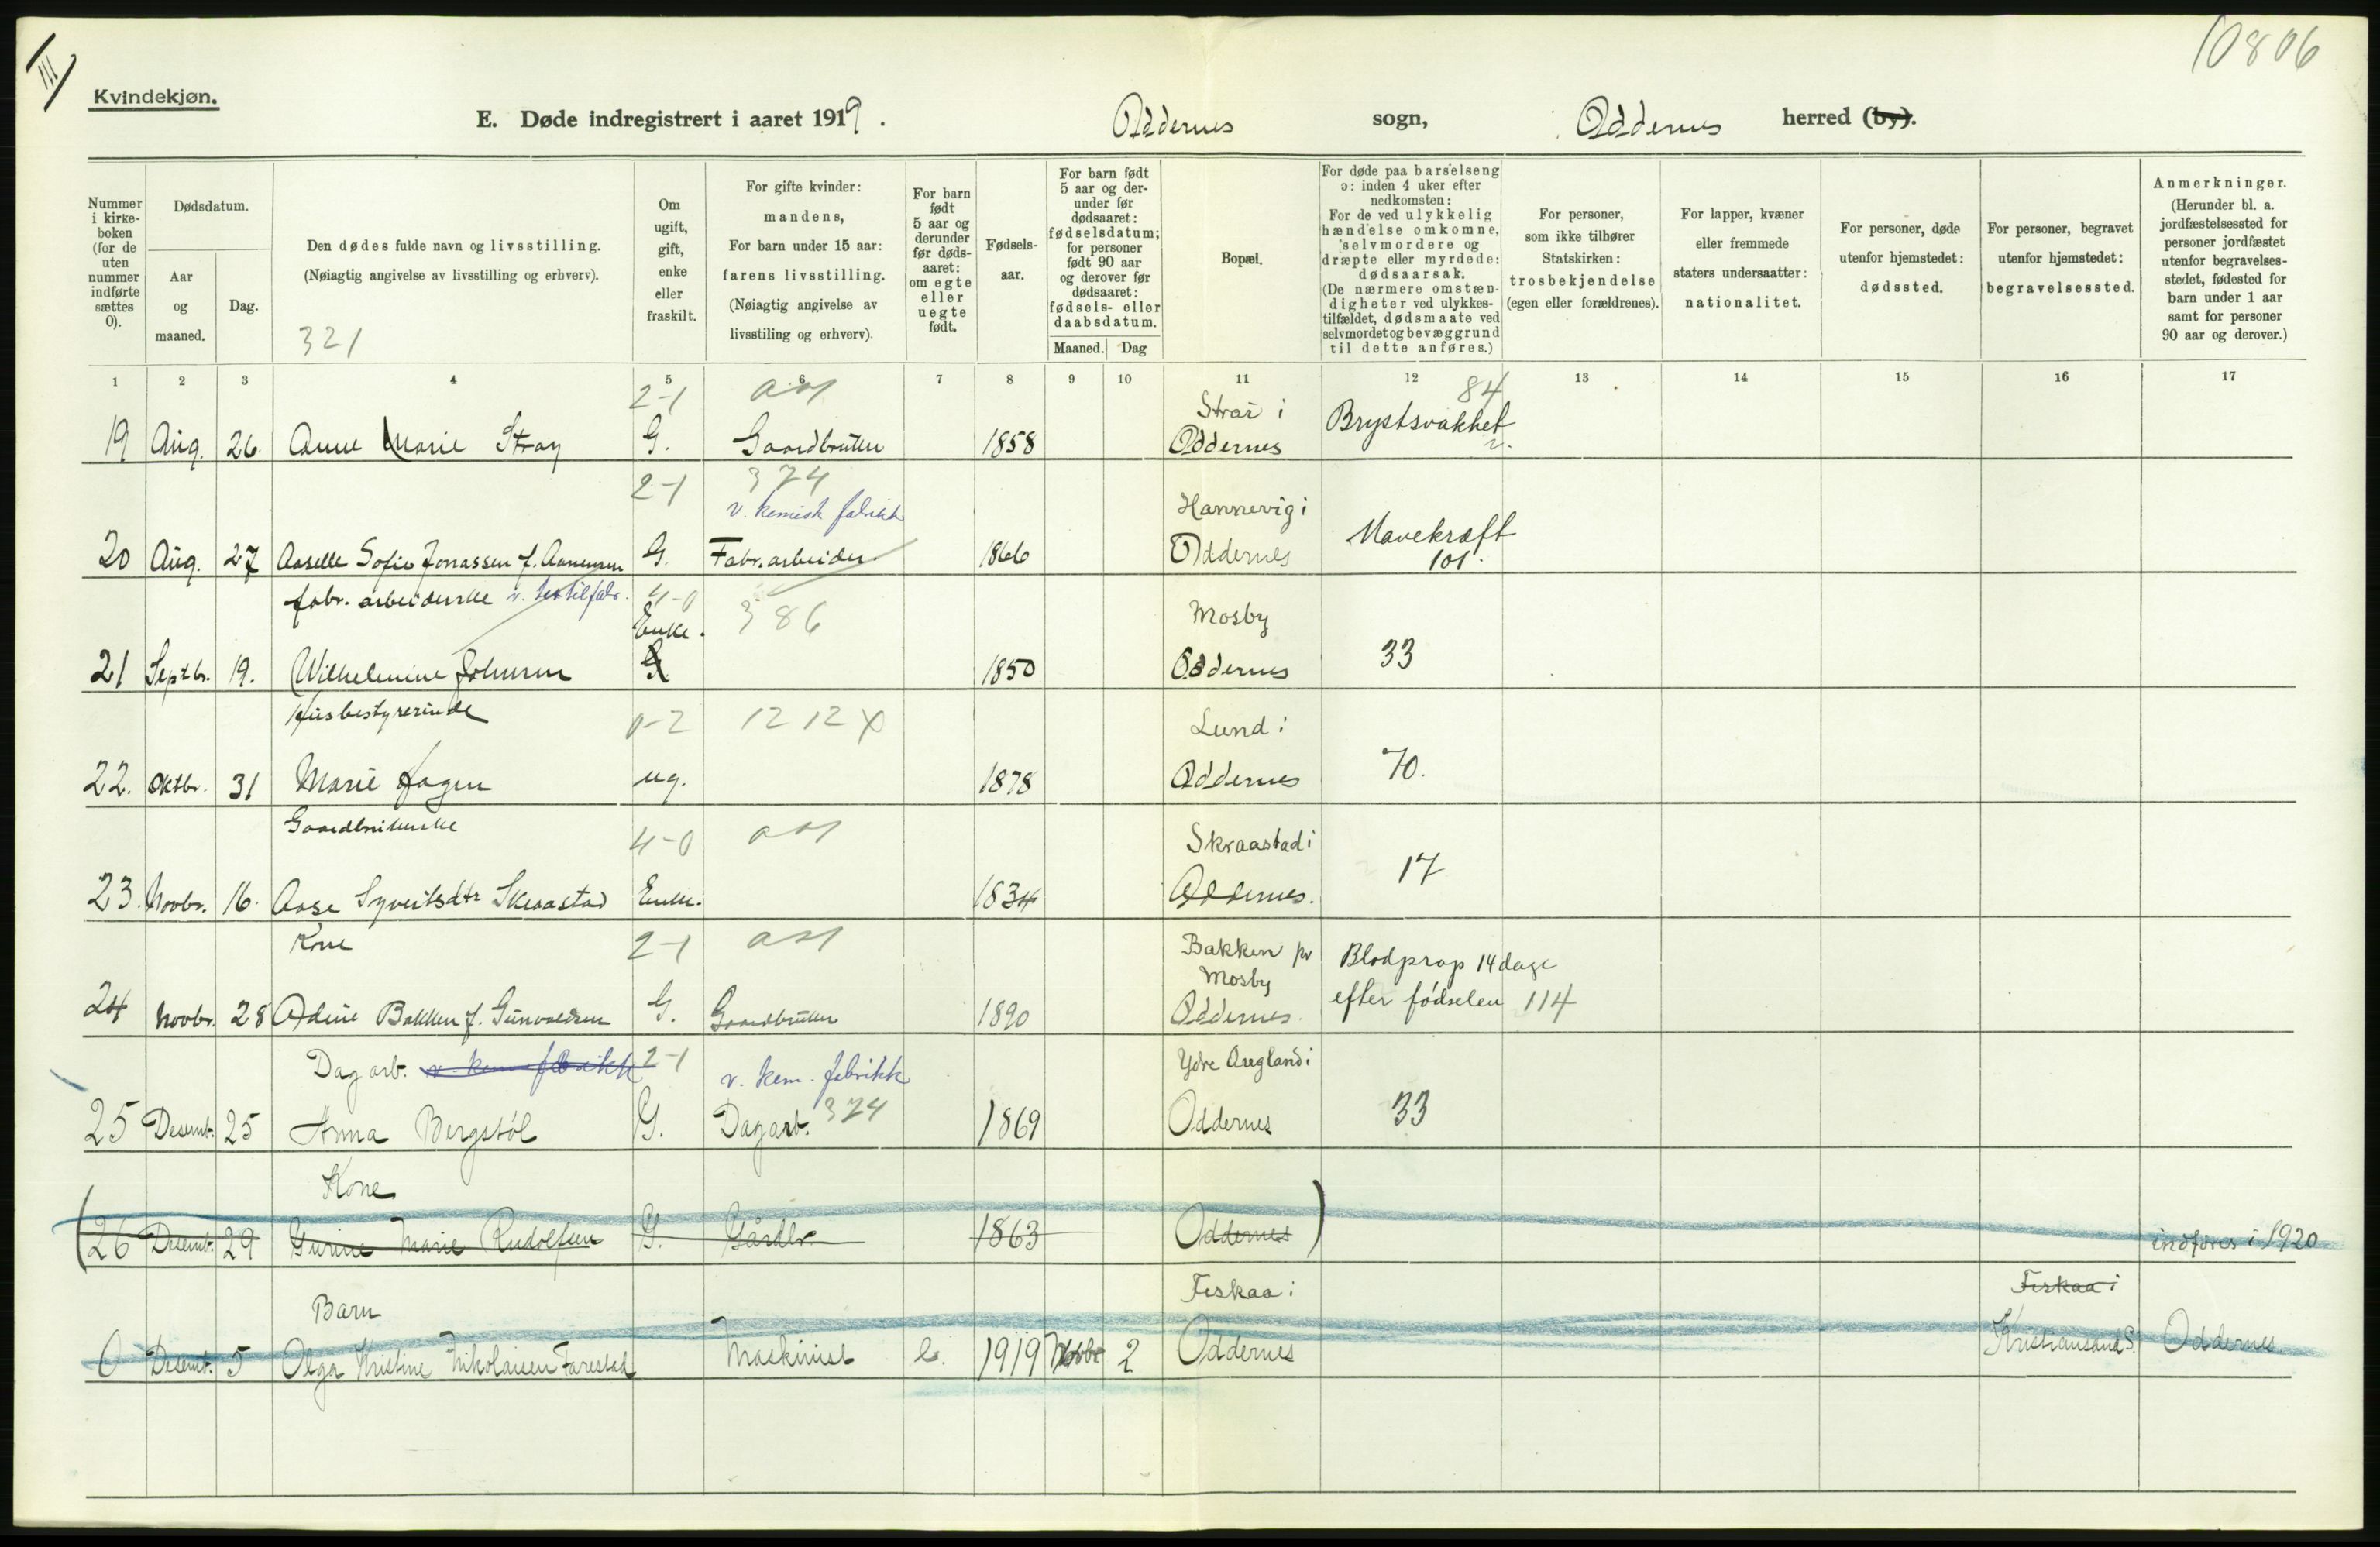 III
10806
Kvindekjøn.
E. Døde indregistrert i aaret 1919. Oddernes sogn, Oddernes herred (by).
Nummer i kirkeboken (for de uten nummer indførte sættes 0).
Dødsdatum.
Aar og maaned.
Dag.
Den dødes fulde navn og livsstilling.
(Nøiagtig angivelse av livsstilling og erhverv).
321
Om ugift, gift, enke eller fraskilt.
For gifte kvinder: mandens,
For barn under 15 aar: farens livsstilling.
(Nøiagtig angivelse av livsstiling og erhverv).
For barn født 5 aar og derunder før dødsaaret: om egte eller uegte født.
Fødselsaar.
For barn født 5 aar og derunder før dødsaaret: fødselsdatum; for personer født 90 aar og derover før dødsaaret: fødsels- eller daabsdatum.
Maaned. Dag
Bopæl.
For døde paa barselseng ɔ: inden 4 uker efter nedkomsten:
For de ved ulykkelig hændelse omkomne, selvmordere og dræpte eller myrdede: dødsaarsak.
(De nærmere omstændigheter ved ulykkestilfældet, dødsmaate ved selvmordet og bevæggrund til dette anføres.)
For personer, som ikke tilhører Statskirken: trosbekjendelse (egen eller forældrenes).
For lapper, kvæner eller fremmede staters undersaatter: nationalitet.
For personer, døde utenfor hjemstedet: dødssted.
For personer, begravet utenfor hjemstedet: begravelsessted.
Anmerkninger.
(Herunder bl. a. jordfæstelsessted for personer jordfæstet utenfor begravelsesstedet, fødested for barn under 1 aar samt for personer 90 aar og derover.)
1 2 3 4 5 6 7 8 9 10 11 12 13 14 15 16 17
2-1 Strai i 84
19 Aug. 26. Anne Marie Stray G. Gaardbruker 1858 Oddernes Brystsvakhet
2-1 374
v. kemisk fabrikk Hannevig i
20 Aug. 27 Aaselle Sofie Jonassen f. Aanensen G. Fabr. arbeider 1866 Oddernes Mavekræft 101.
fabr. arbeiderske v. textilfabr. 4-0 386
Enke. Mosby
21 Septbr. 19. Wilhelmine Johnsen G 1850 Oddernes 33
Husbestyrerinde 0-2 1212 X Lund i
22. Oktbr. 31 Marie Hagen ug. 1878 Oddernes 70.
Gaardbrukerske 4-0 Skraastad i
23. Novbr. 16. Aase Syvertsdtr Skraastad Enke. 1834 Oddernes. 17
Kone 2-1 Bakken pr Mosby
24 Novbr. 28 Adine Bakken f. Gunvaldsen G. Gaardbruker 1890 Oddernes. Blodprop 14 dage efter fødselen 114
Dagarb. v. kem fabrikk 2-1 v. kem. fabrikk Ydre Aregland i
25 Desembr. 25 Anna Bergstøl G. Dagarb. 374 1869 Oddernes 33
Kone
(26 Desembr. 29 Gurine Marie Rudolfsen G. Gårdbr. 1863 Oddernes) indføres i 1920
Barn Fiskaa i Fiskaa i
0 Desembr. 5 Olga Kristine Nikolaisen Farestad Maskinist e. 1919 Novbr 2 Oddernes Kristiansand S. Oddernes